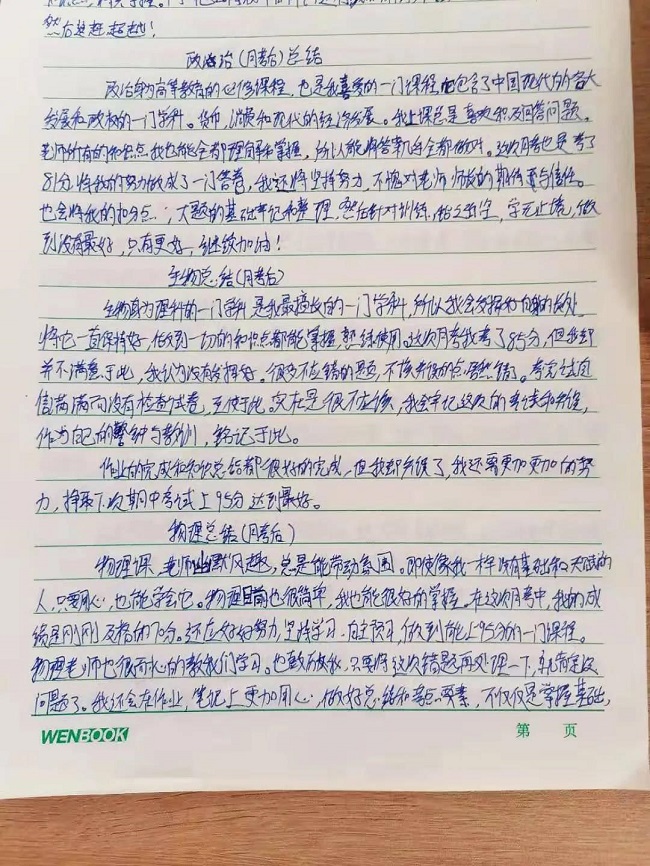 然后追赶超越！
政治(月考后)总结
政治身为高等教育的必修课程，也是我喜爱的一门课程，它包含了中国现代的各大
发展和政权的一门学科。货币，消费和现代的经济发展。我上课总是喜欢积极回答问题。
老师所有的知识点我也能全都理解和掌握，所以能将答案几乎全都做对。这次月考也是考了
81分，将我的努力做成了一门答卷，我还将坚持努力，不愧对老师 师长的期待与信任。
也会将我的扣分点，大题的基础牢记和整理，然后针对训练，学无止境，做
到没有最好，只有更好，继续加油！
生物总结(月考后)
生物身为理科的一门学科 是我最擅长的一门学科，所以我会发挥和自身的长处
将它一直保持好，做到一切的知识点都能掌握，熟练使用。这次月考我考了85分，但我却
并不满意于此，我认为没有发挥好。很多不应错的题，不该丢的点居然错了。考完试自
信满满而没有检查试卷，至使于此。实在是很不应该，我会牢记这次的考试和失误，
作为自己的警钟与教训，铭记于此。
作业的完成和知识总结都很好的完成，但我却失误了，我还需更加更加的努
力，择取下次期中考试上95分 达到最好。
物理总结(月考后)
物理课，老师幽默风趣，总是能带动氛围。即使像我一样没有基础和天赋的
人，只要用心，也能学会它。物理目前也很简单，我也能很好的掌握。在这次月考中，我的成
绩是刚刚及格的70分。还应好好努力，坚持学习，自主预习，做到能上95分的一门课程。
物理老师也很耐心的教我们学习。也鼓励我，只要将这次错题再处理一下，就肯定没
问题了。我还会在作业，笔记上更加用心，做好总结和考点要素，不仅仅是掌握基础，
WENBOOK
第 页